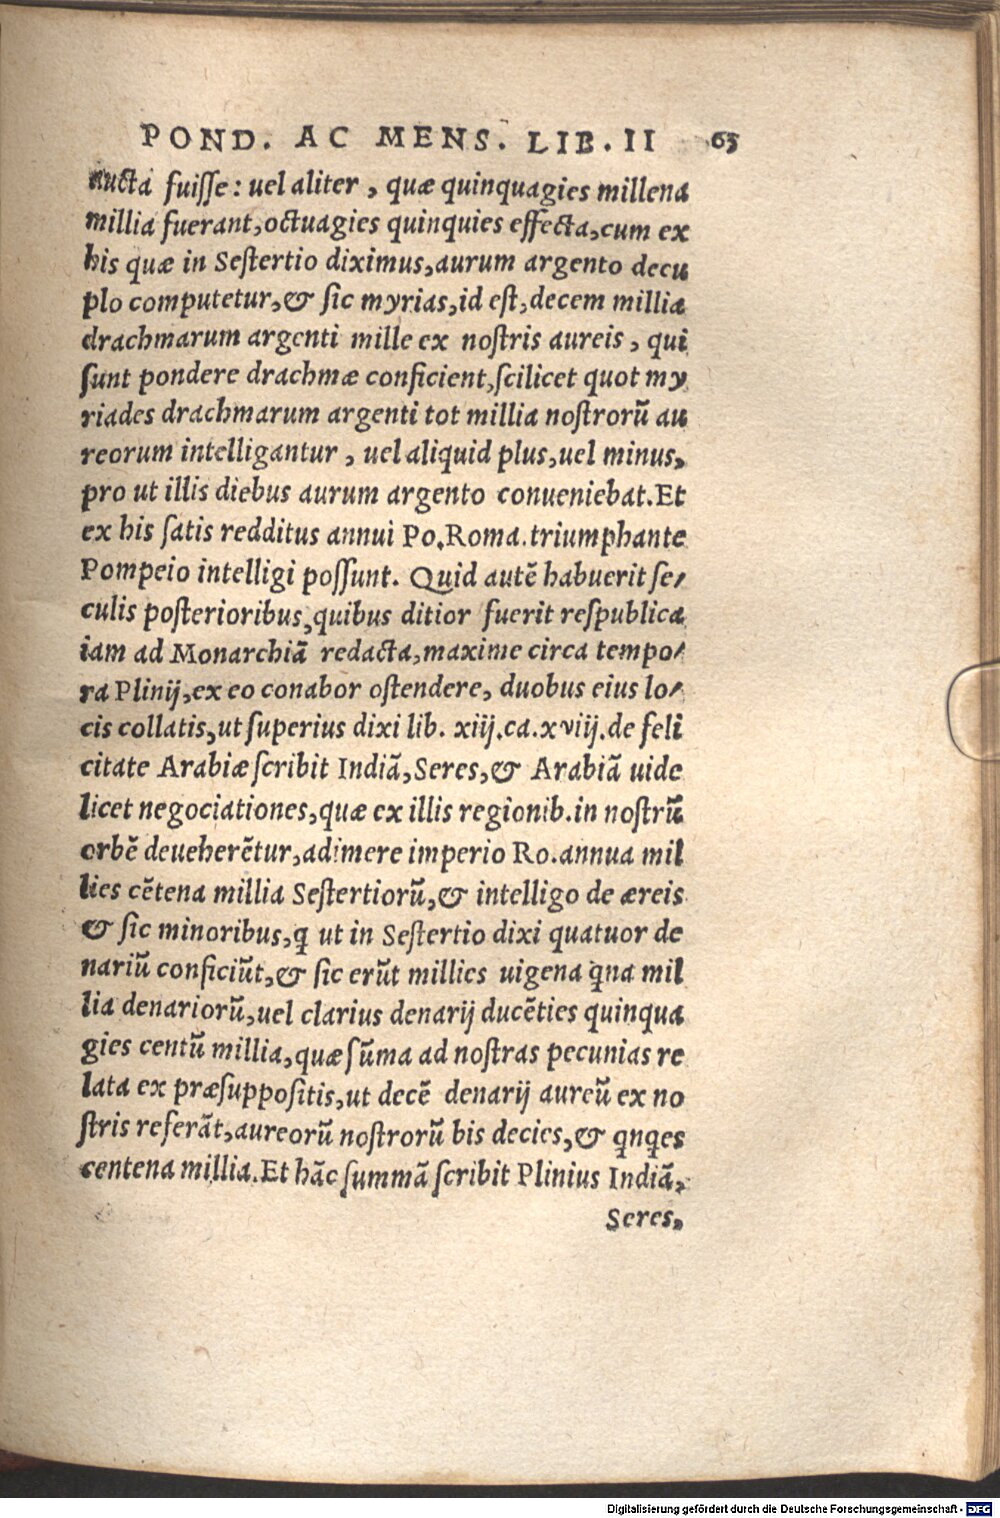 POND. AC MENS. LIB. II 65
aucta fuisse: uel aliter, quæ quinquagies millena
millia fuerant, octuagies quinquies effecta, cum ex
his quæ in Sestertio diximus, aurum argento decu
plo computetur, & sic myrias, id est, decem millia
drachmarum argenti mille ex nostris aureis, qui
sunt pondere drachmæ conficient, scilicet quot my
riades drachmarum argenti tot millia nostrorũ au
reorum intelligantur, uel aliquid plus, uel minus,
pro ut illis diebus aurum argento conueniebat. Et
ex his satis redditus annui Po. Roma. triumphante
Pompeio intelligi possunt. Quid autẽ habuerit se/
culis posterioribus, quibus ditior fuerit respublica
iam ad Monarchiã redacta, maxime circa tempo/
ra Plinij, ex eo conabor ostendere, duobus eius lo/
cis collatis, ut superius dixi lib. xiij. ca. xviij. de feli
citate Arabiæ scribit Indiã, Seres, & Arabiã uide
licet negociationes, quæ ex illis regionib. in nostrũ
orbẽ deueherẽtur, adimere imperio Ro. annua mil
lies cẽtena millia Sestertiorũ, & intelligo de æreis
& sic minoribus, ꝗ ut in Sestertio dixi quatuor de
nariũ conficiũt, & sic erũt millies uigena qͥna mil
lia denariorũ, uel clarius denarij ducẽties quinqua
gies centũ millia, quæ sũma ad nostras pecunias re
lata ex præsuppositis, ut decẽ denarij aureũ ex no
stris referãt, aureorũ nostrorũ bis decies, & qͥnqͥes
centena millia. Et hãc summã scribit Plinius Indiã,
Seres,
Digitalisierung gefördert durch die Deutsche Forschungsgemeinschaft - DFG